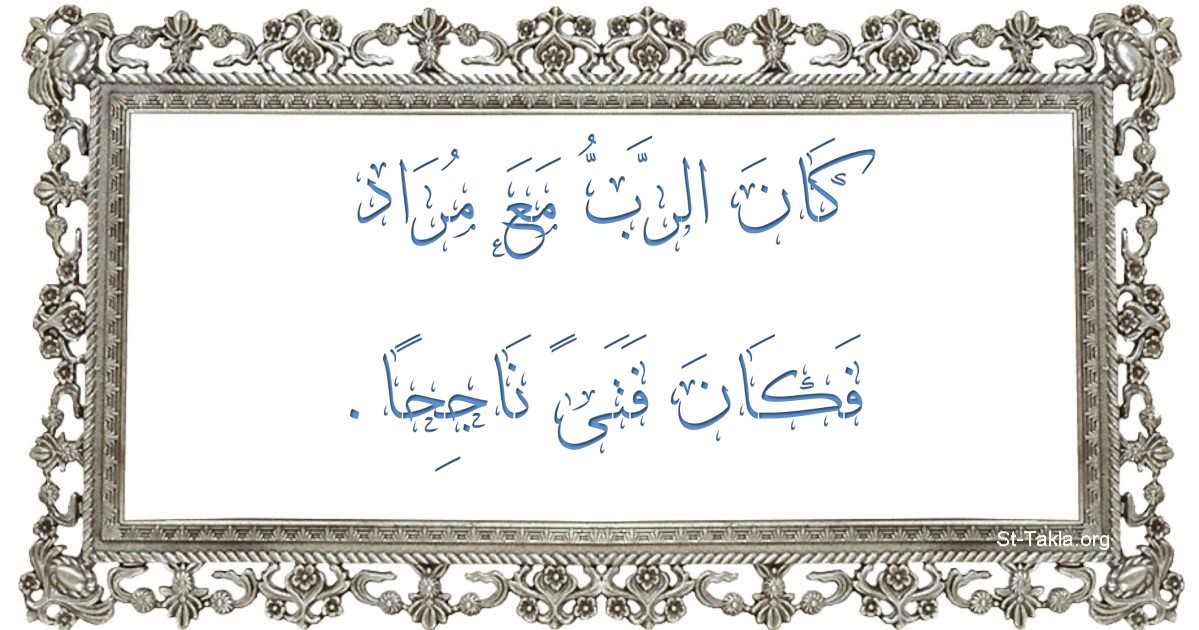 كَانَ الرَّبُّ مَعَ مُرَاد
فَكَانَ فَتَىً نَاجِحًا .
St-Takla.org